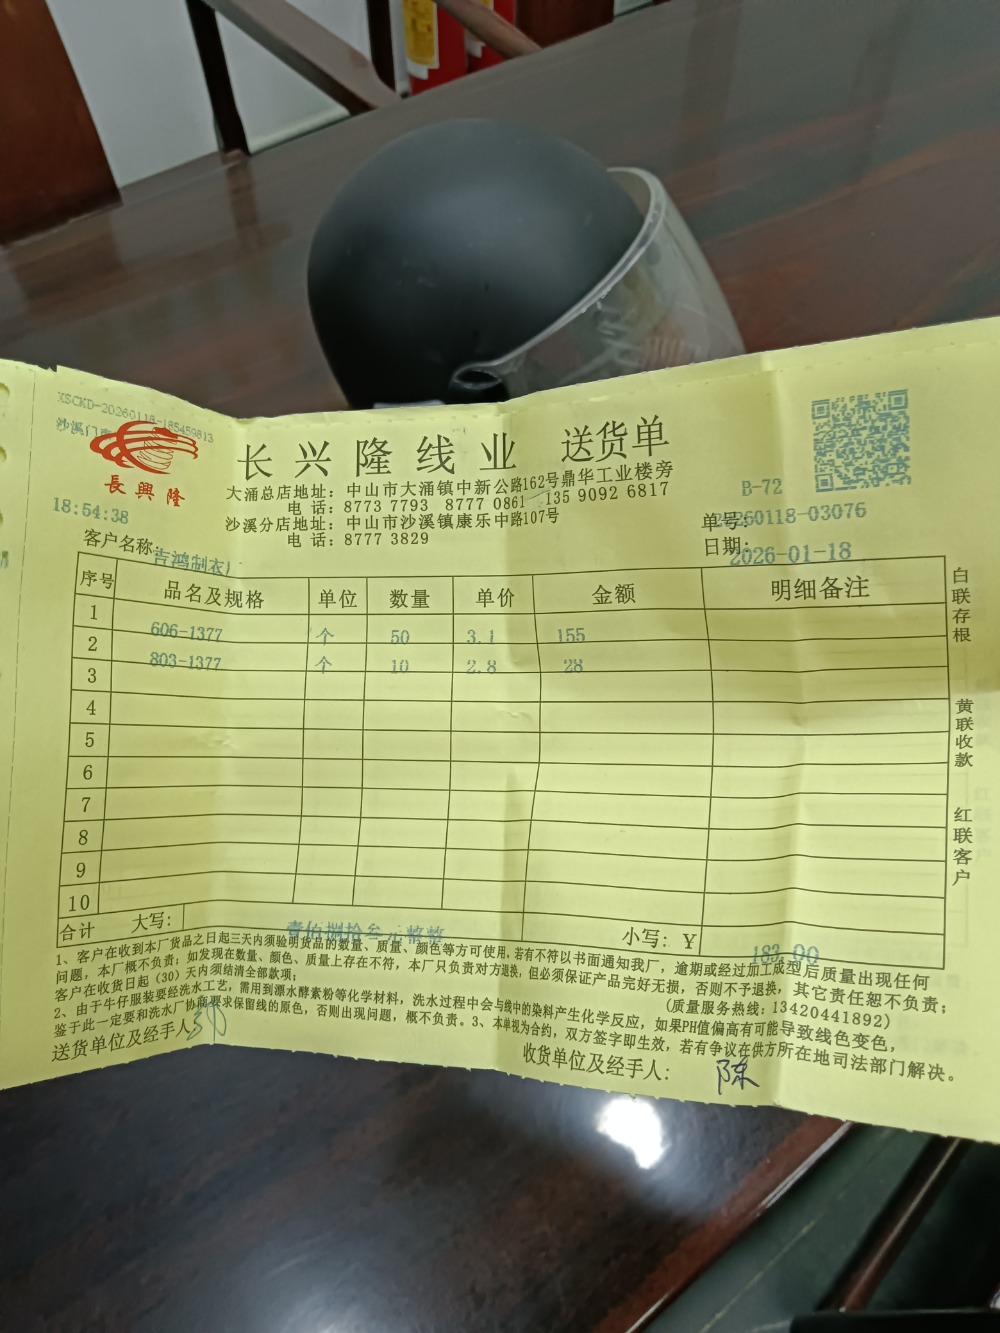 XSCKD-20260118-185459813
沙溪门
長興隆
长兴隆线业 送货单
大涌总店地址：中山市大涌镇中新公路162号鼎华工业楼旁
电 话：8773 7793 8777 0861 135 9092 6817
沙溪分店地址：中山市沙溪镇康乐中路107号
电 话：8777 3829
B-72
18:54:38
单号：20260118-03076
日期：2026-01-18
客户名称：吉鸿制衣厂
序号 品名及规格 单位 数量 单价 金额 明细备注
1 606-1377 个 50 3.1 155
2 803-1377 个 10 2.8 28
3
4
5
6
7
8
9
10
合计 大写：壹佰捌拾叁元整整 小写：￥183.00
1、客户在收到本厂货品之日起三天内须验明货品的数量、质量、颜色等方可使用，若有不符以书面通知我厂，逾期或经过加工成型后质量出现任何
问题，本厂概不负责；如发现在数量、颜色、质量上存在不符，本厂只负责对方退换，但必须保证产品完好无损，否则不予退换，其它责任恕不负责；
客户在收货日起（30）天内须结清全部款项；
(质量服务热线：13420441892)
2、由于牛仔服装要经洗水工艺，需用到漂水酵素粉等化学材料，洗水过程中会与线中的染料产生化学反应，如果PH值偏高有可能导致线色变色，
鉴于此一定要和洗水厂协商要求保留线的原色，否则出现问题，概不负责。3、本单视为合约，双方签字即生效，若有争议在供方所在地司法部门解决。
送货单位及经手人：
收货单位及经手人：陈
白联存根
黄联收款
红联客户